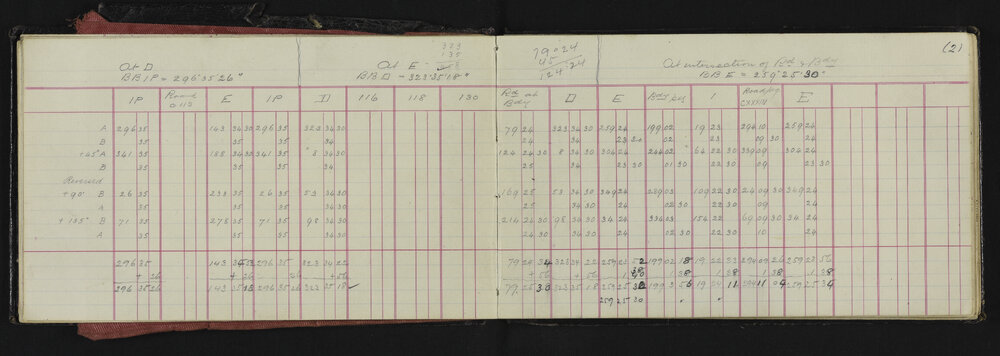 (2)
At D
BB IP = 296°35'26"
323
135
At E
BB D = 323°35'18"
79°0'24
45
124 24
At intersection of Rd & Bdy
BB E = 259°25'30"
IP Road E IP D 116 118 130 Rd at Bdy D E Bdy peg 1 Road peg CXXIV E
A 296 35 143 34 30 296 35 323 34 30 79 24 323 34 30 259 24 199 02 19 23 294 10 259 24
B 35 35 35 34 24 34 02 23 09 30 24
+45° A 341 35 188 34 30 341 35 8 34 30 124 24 30 8 34 30 304 24 244 02 64 22 30 339 09 304 24
B 35 35 35 34 30 25 34 23 30 01 30 22 30 09 23 30
Reversed
+90° B 26 35 233 35 26 35 53 34 30 169 25 53 34 30 349 24 289 03 109 22 30 24 09 30 349 24
A 35 35 35 34 30 25 34 30 24 02 30 22 30 09 24
+135° B 71 35 278 35 71 35 98 34 30 214 24 30 98 34 30 34 24 334 03 154 22 69 09 30 34 24
A 35 35 35 34 30 24 30 34 30 24 02 30 22 30 10 24
296 35 143 34 296 35 323 34 22 79 24 34 323 34 22 259 23 52 199 02 18 19 22 33 294 09 26 259 23 56
+ 26 + 26 26 +56 +56 +56 1 38 1 38 1 38 1 38
296 35 26 143 35 296 35 26 323 35 18 79 25 30 323 35 18 259 25 30 199 3 56 19 24 11 294 11 04 259 25 34
259 25 30